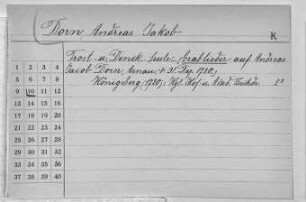 Dorn Andreas Jakob
K
Trost- u. Denck-Seule, Grablieder auf Andreas
Jacob Dorn, † 31. Dez. 1720.
Königsberg (1720): Kgl. Hof u. Akad. Buchdr. 2°
1 2 3 4
5 6 7 8
9 10 11 12
13 14 15 16
17 18 19 20
21 22 23 24
25 26 27 28
29 30 31 32
33 34 35 36
37 38 39 40